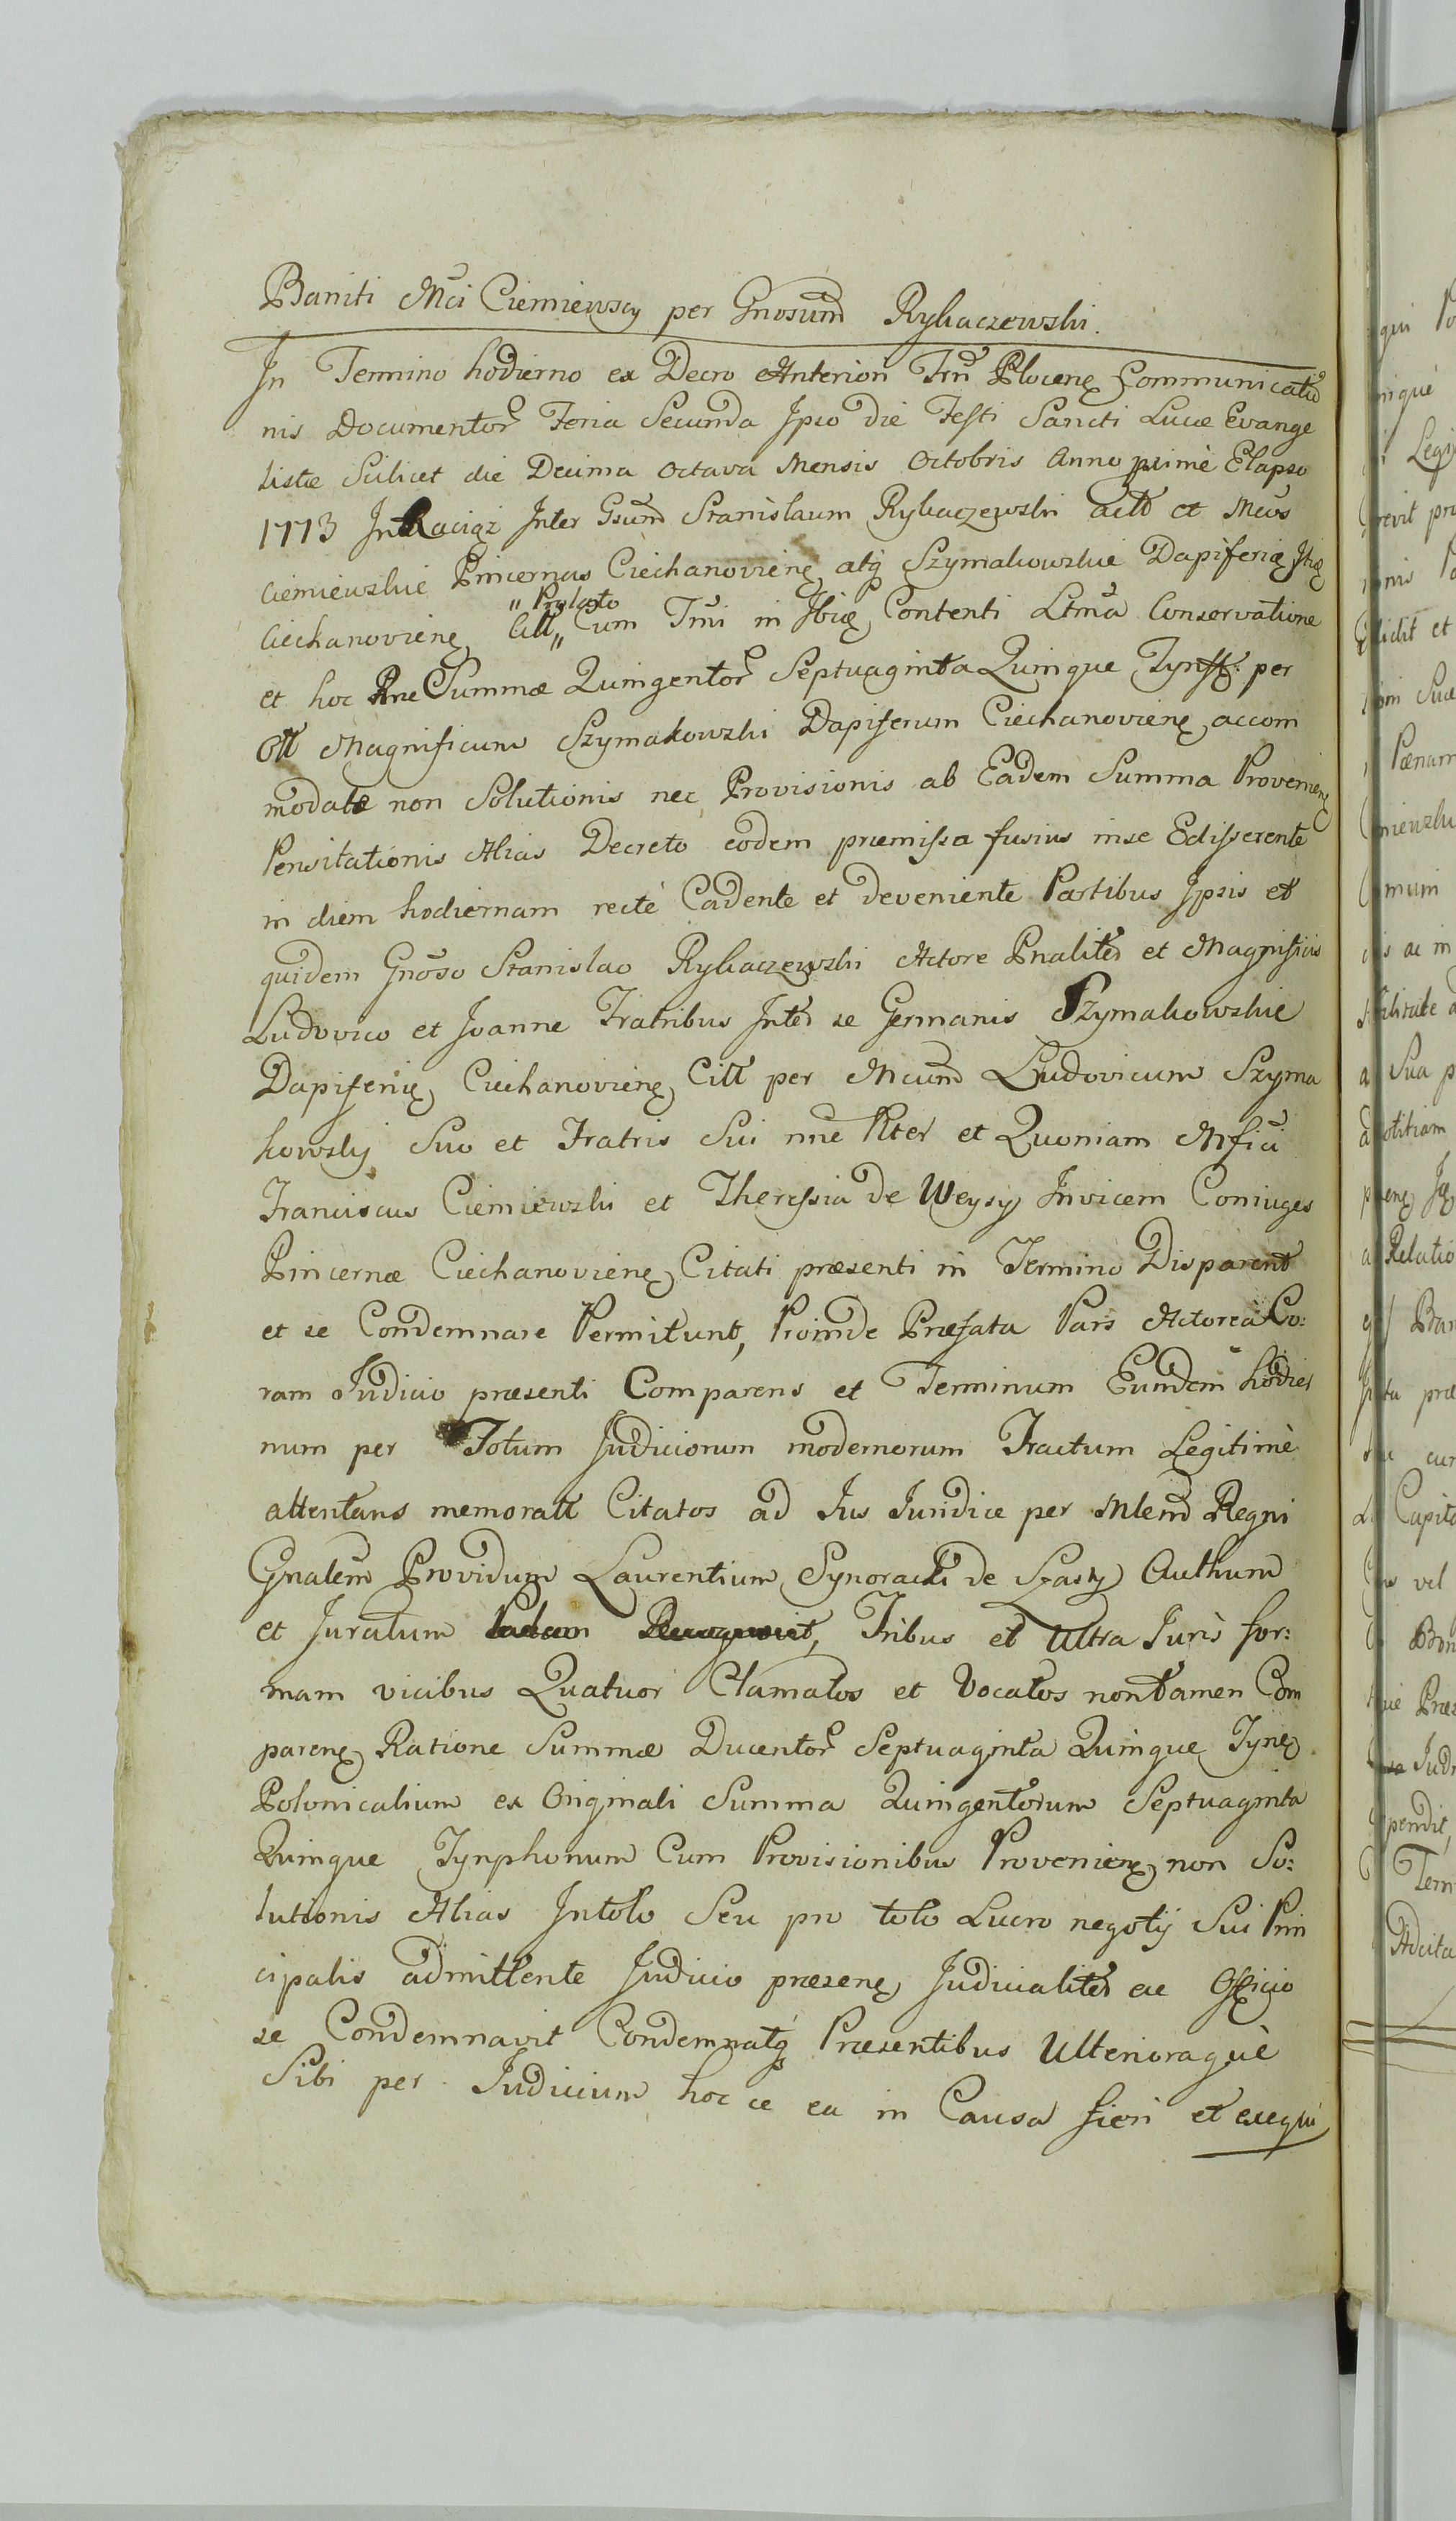 Baniti Mci Ciemiewscy per Gnosum Rybaczewski.
In Termino hodierno ex Decro Anteriori Trn Plocen Communicatio
nis Documentor Feria Secunda Ipso die Festi Sancti Lucæ Evange
listæ Scilicet die Decima Octava Mensis Octobris Anno primè Elapso
1773 In Raciąż Inter Gsum Stanislaum Rybaczewski act et Mcos
Ciemiewskie Pincernas Ciechanovien atq Szymakowskie Dapiferie Itid
Ciechanovien Citt „Prolato„ cum Tmi in Ibid Contenti Ltma Conservatione
et hoc Rne Summæ Quingentor Septuaginta Quinque Tynff: per
Ott Magnificum Szymakowski Dapiferum Ciechanovien accom
modatæ non Solutionis nec Provisionis ab Eadem Summa Provenien
Pensitationis Alias Decreto eodem præmissa fusius in se Edisserente
in diem hodiernam rectè Cadente et deveniente Partibus Ipsis et
quidem Gnoso Stanislao Rybaczewski Actore Pnaliter et Magnificis
Ludovico et Joanne Fratribus Inter se Germanis Szymakowskie
Dapiferie Ciechanovien Citt per Mcum Ludovicum Szyma
kowsky Suo et Fratris Sui nne Pter et Quoniam Mfici
Franciscus Ciemiewski et Theressia de Weysy Invicem Coniuges
Pincernæ Ciechanovien Citati præsenti in Termino Disparent
et se Condemnare Permitunt, Proinde Præfata Pars Actorea Co:
ram Judicio præsenti Comparens et Terminum Eundem hodier
num per Totum Judiciorum modernorum Tractum Legitimè
attentans memoratt Citatos ad Jus Juridice per Mlem Regni
Gnalem Providum Laurentium Synoracki de Szasty Authum
et Juratum Tribus et Ultra Juris for:
mam vicibus Quatuor Clamatos et Vocatos non tamen Com
paren Ratione Summæ Ducentor Septuaginta Quinque Tyne
Polonicalium ex Originali Summa Quingentorum Septuaginta
Quinque Tynphonum Cum Provisionibus Provenien non So:
lutionis Alias In toto Seu pro toto Lucro negotij Sui Prin
cipalis admittente Judicio præsen Judicialiter ac Officio
se Condemnavit Condemnatq Præsentibus Ulterioraquè
Sibi per Judicium hoc ce ea in Causa fieri et exequi